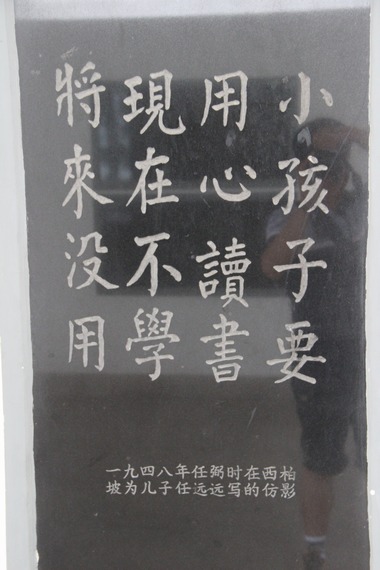 小孩子要
用心讀書
現在不學
將來没用
一九四八年任弼时在西柏
坡为儿子任远远写的仿影